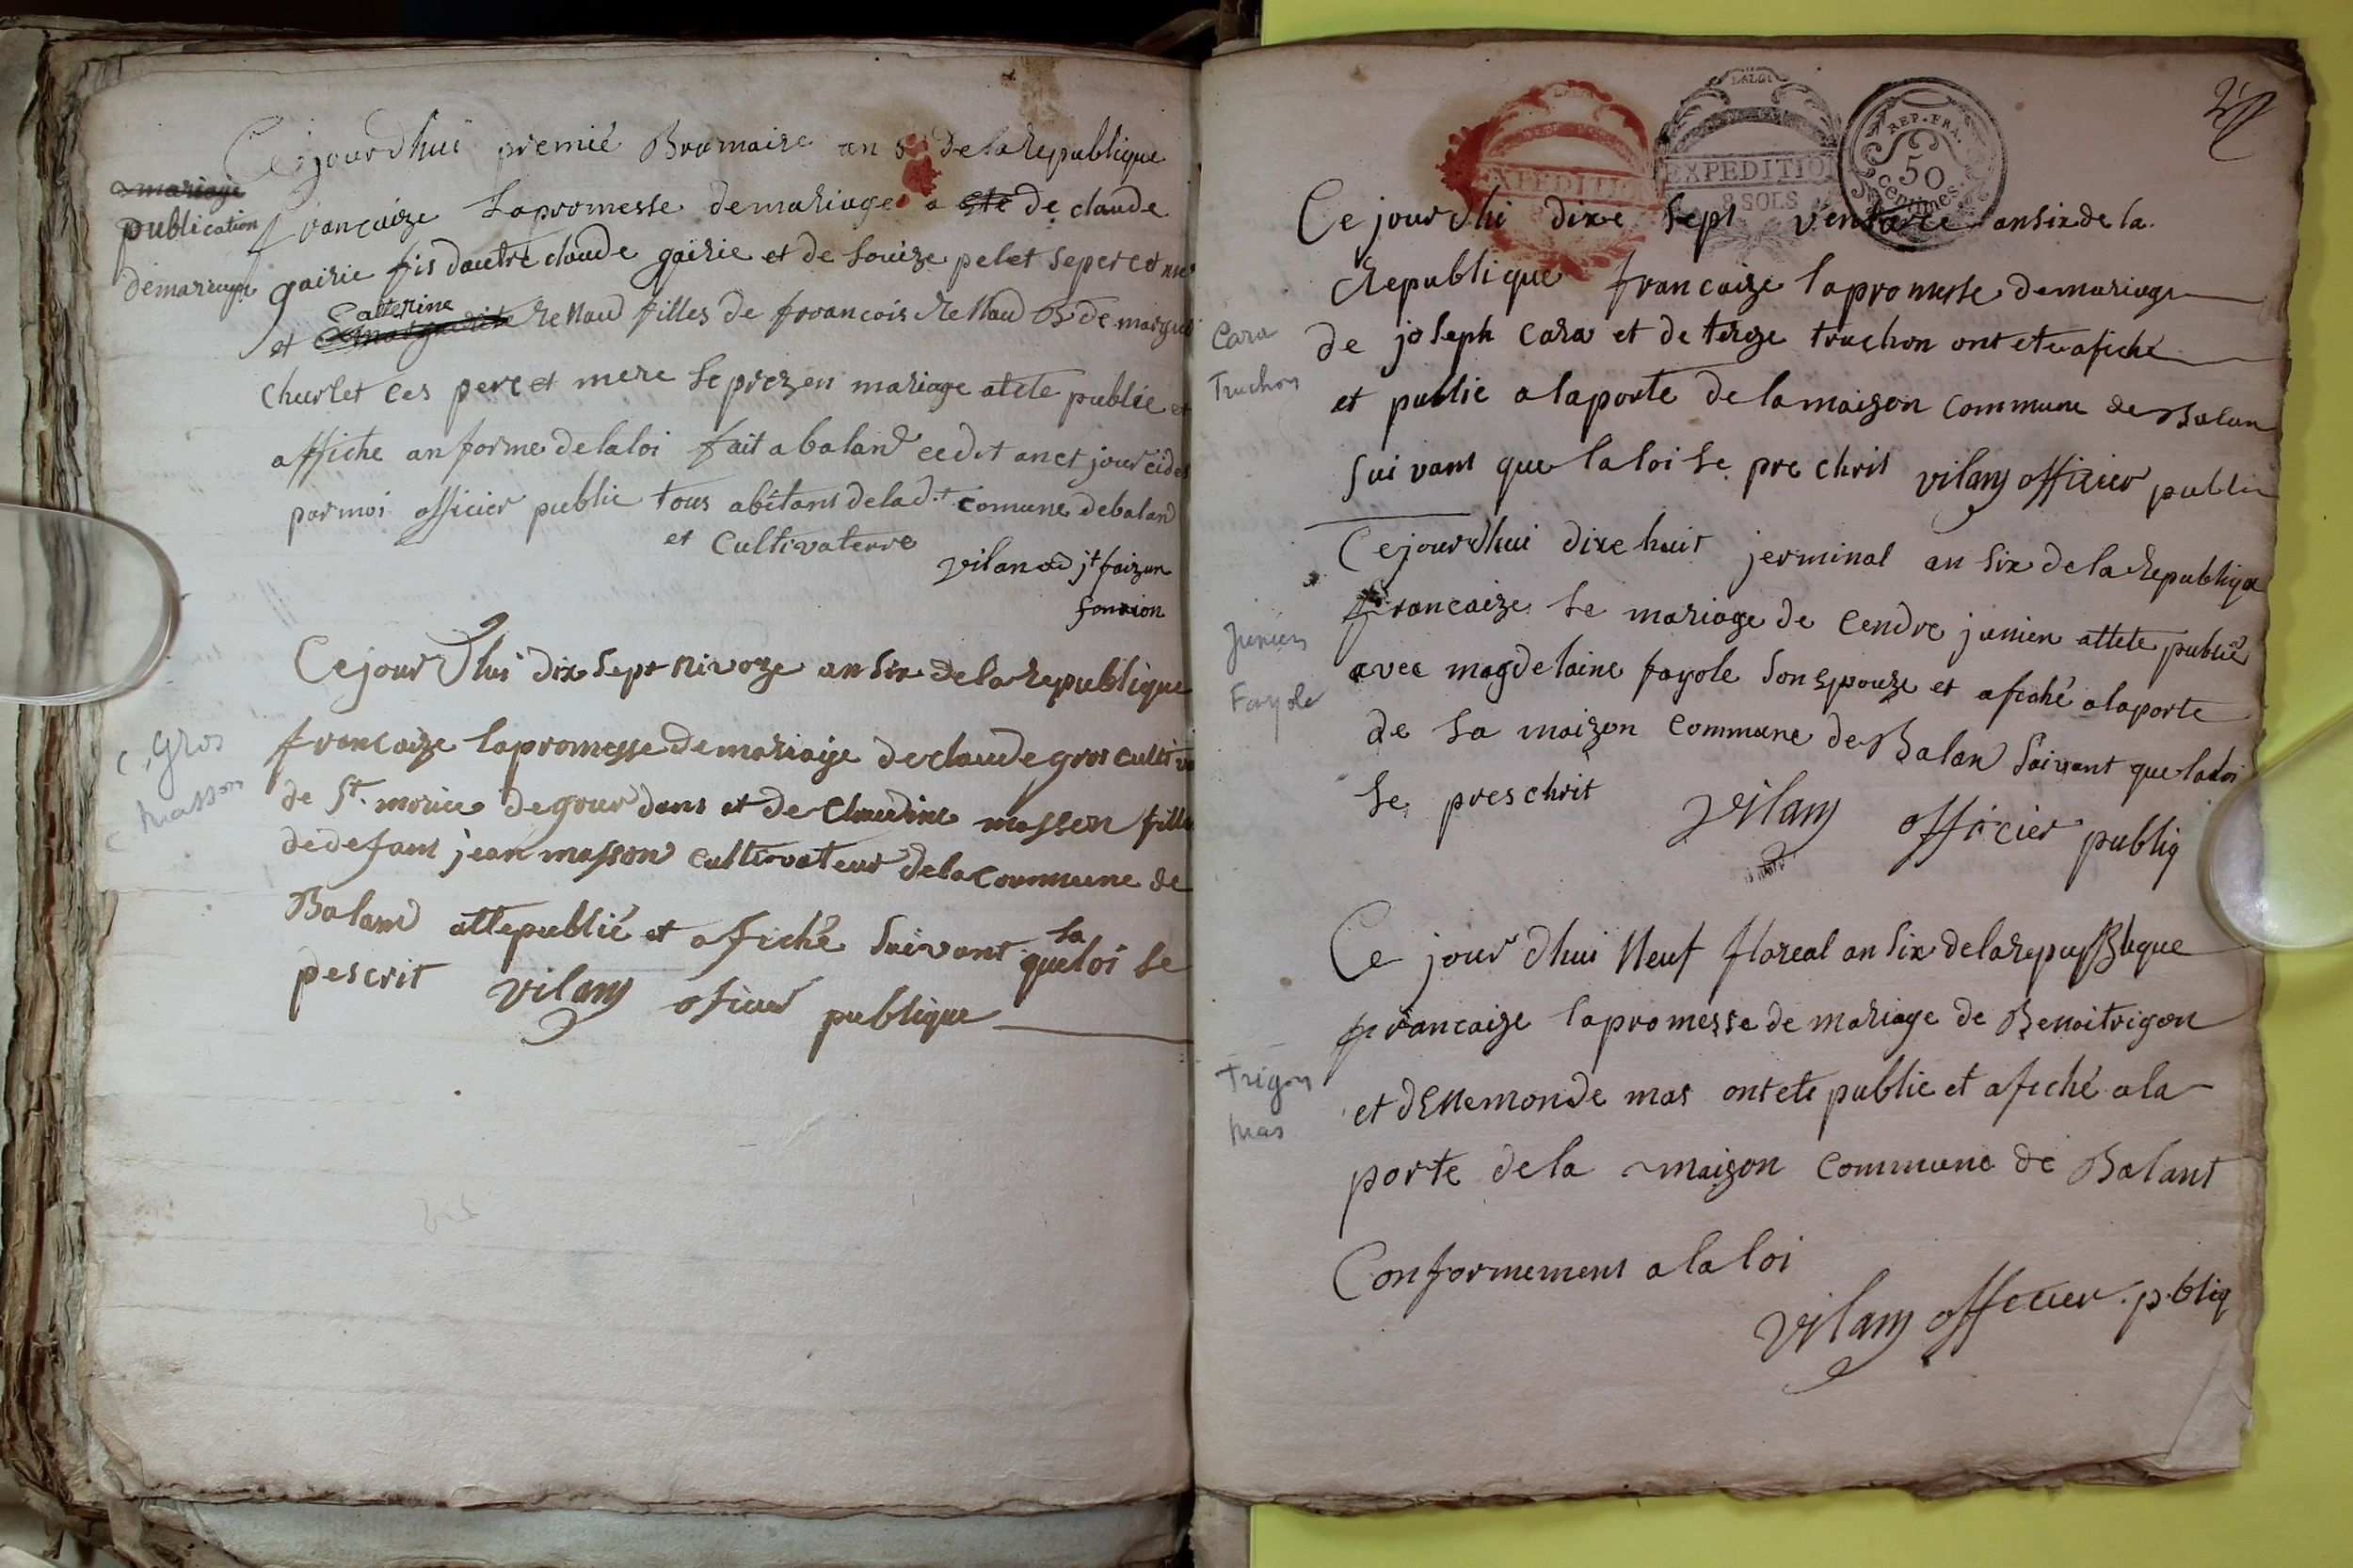 Cejourdhui premié Brumaire an 8 de la Republique
mariage
publication
demariage
francaize la promesse de mariage a eté de claude
gairie fis dautre claude gairie et de Louize pelet se pere et mer
Catterine
et Renaud filles de francois Renaud et de margue
churlet ces pere et mere le prezen mariage atete publié et
affiche an forme de la loi fait a baland cedit an et jour cides
par moi officier public tous abitans de lad.t comune debaland
et Cultivaterre
vilan
Cejourdhui dix sept nivoze an six de la republique
francaize la promesse de mariage de claude gros cultiva
C. Gros
C Masson
de St. morice de gourdans et de Claudine masson fille
de defant jean masson cultivateur de la coummune de
Baland atte publié et afiché suivant que la loi le
pescrit vilan oficier publique
LA LOI
EXPEDITION
EXPEDITION
8 SOLS
REP. FRA.
50
centimes.
Ce jourdhi dixe sept ventoze an six de la
Republique francaize la promesse de mariage
Cara
Truchon
de joseph cara et de tereze truchon ont ete afiché
et publié a la porte de la maizon commune de Balan
suivant que la loi le prechrit vilan officier public
Cejourdhui dixe huit jerminal an six de la Republique
francaize le mariage de Cendre junien attete publié
Junien
Fayole
avec magdelaine fayole son epouze et afiché a la porte
de la maizon commune de Balan suivant que la loi
le preschrit vilan officier publiq
Ce jour dhui Neuf floreal an six de la republique
francaize la promesse de mariage de Benoit trigon
Trigon
Mas
et dEnemonde mas ont ete publié et afiché a la
porte de la maizon commune de Balant
Conformement a la loi
vilan officier publiq